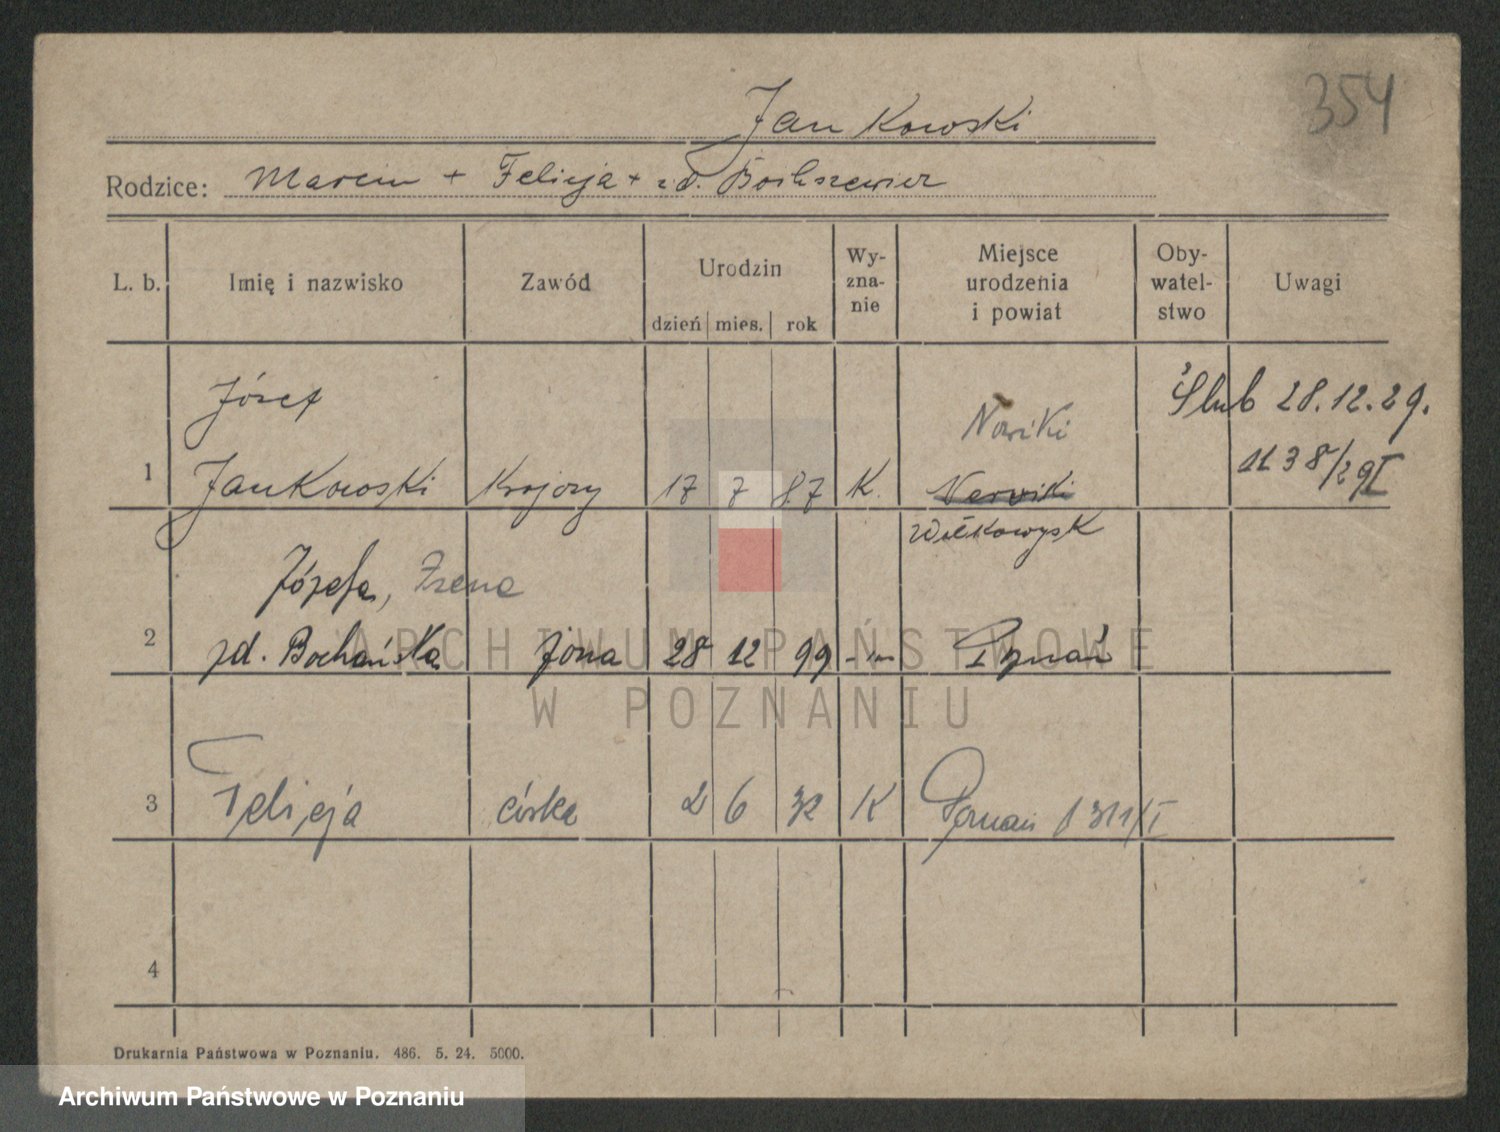 354
Jankowski
Rodzice: Marcin + Felicja + zd.
L. b. Imię i nazwisko Zawód Urodzin dzień mies. rok Wy-zna-nie Miejsce urodzenia i powiat Oby-watel-stwo Uwagi
Józef Nowiki Ślub 28.12.29.
1 Jankowski 17 7 87 K. 1138/29 I
Józefa, Irena
2 zd. Bochańska żona 28 12 99 Poznań
3 Felicja córka 2 6 32 K Poznań 1311/I
4
Drukarnia Państwowa w Poznaniu. 486. 5. 24. 5000.
ARCHIWUM PAŃSTWOWE
W POZNANIU
Archiwum Państwowe w Poznaniu